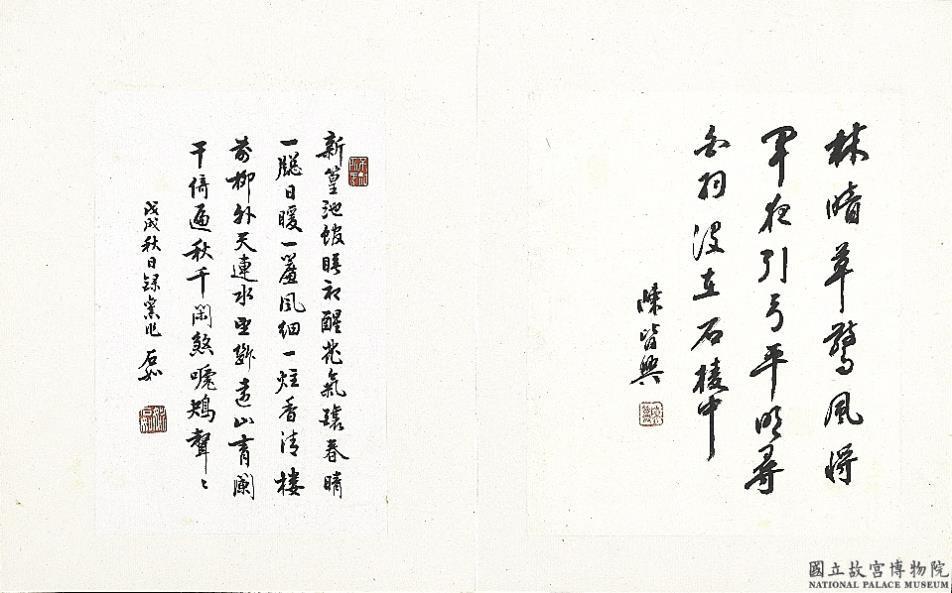 林暗草驚風將
軍夜引弓平明尋
白羽沒在石稜中
陳皆興
新篁池館睡初醒花氣釀春晴
一牕日暖一簾風細一炷香清樓
前柳外天連水望斷遠山青闌
干倚遍秋千閑煞嗁鴂聲〻
戊戌秋日錄 石如
國立故宮博物院
NATIONAL PALACE MUSEUM